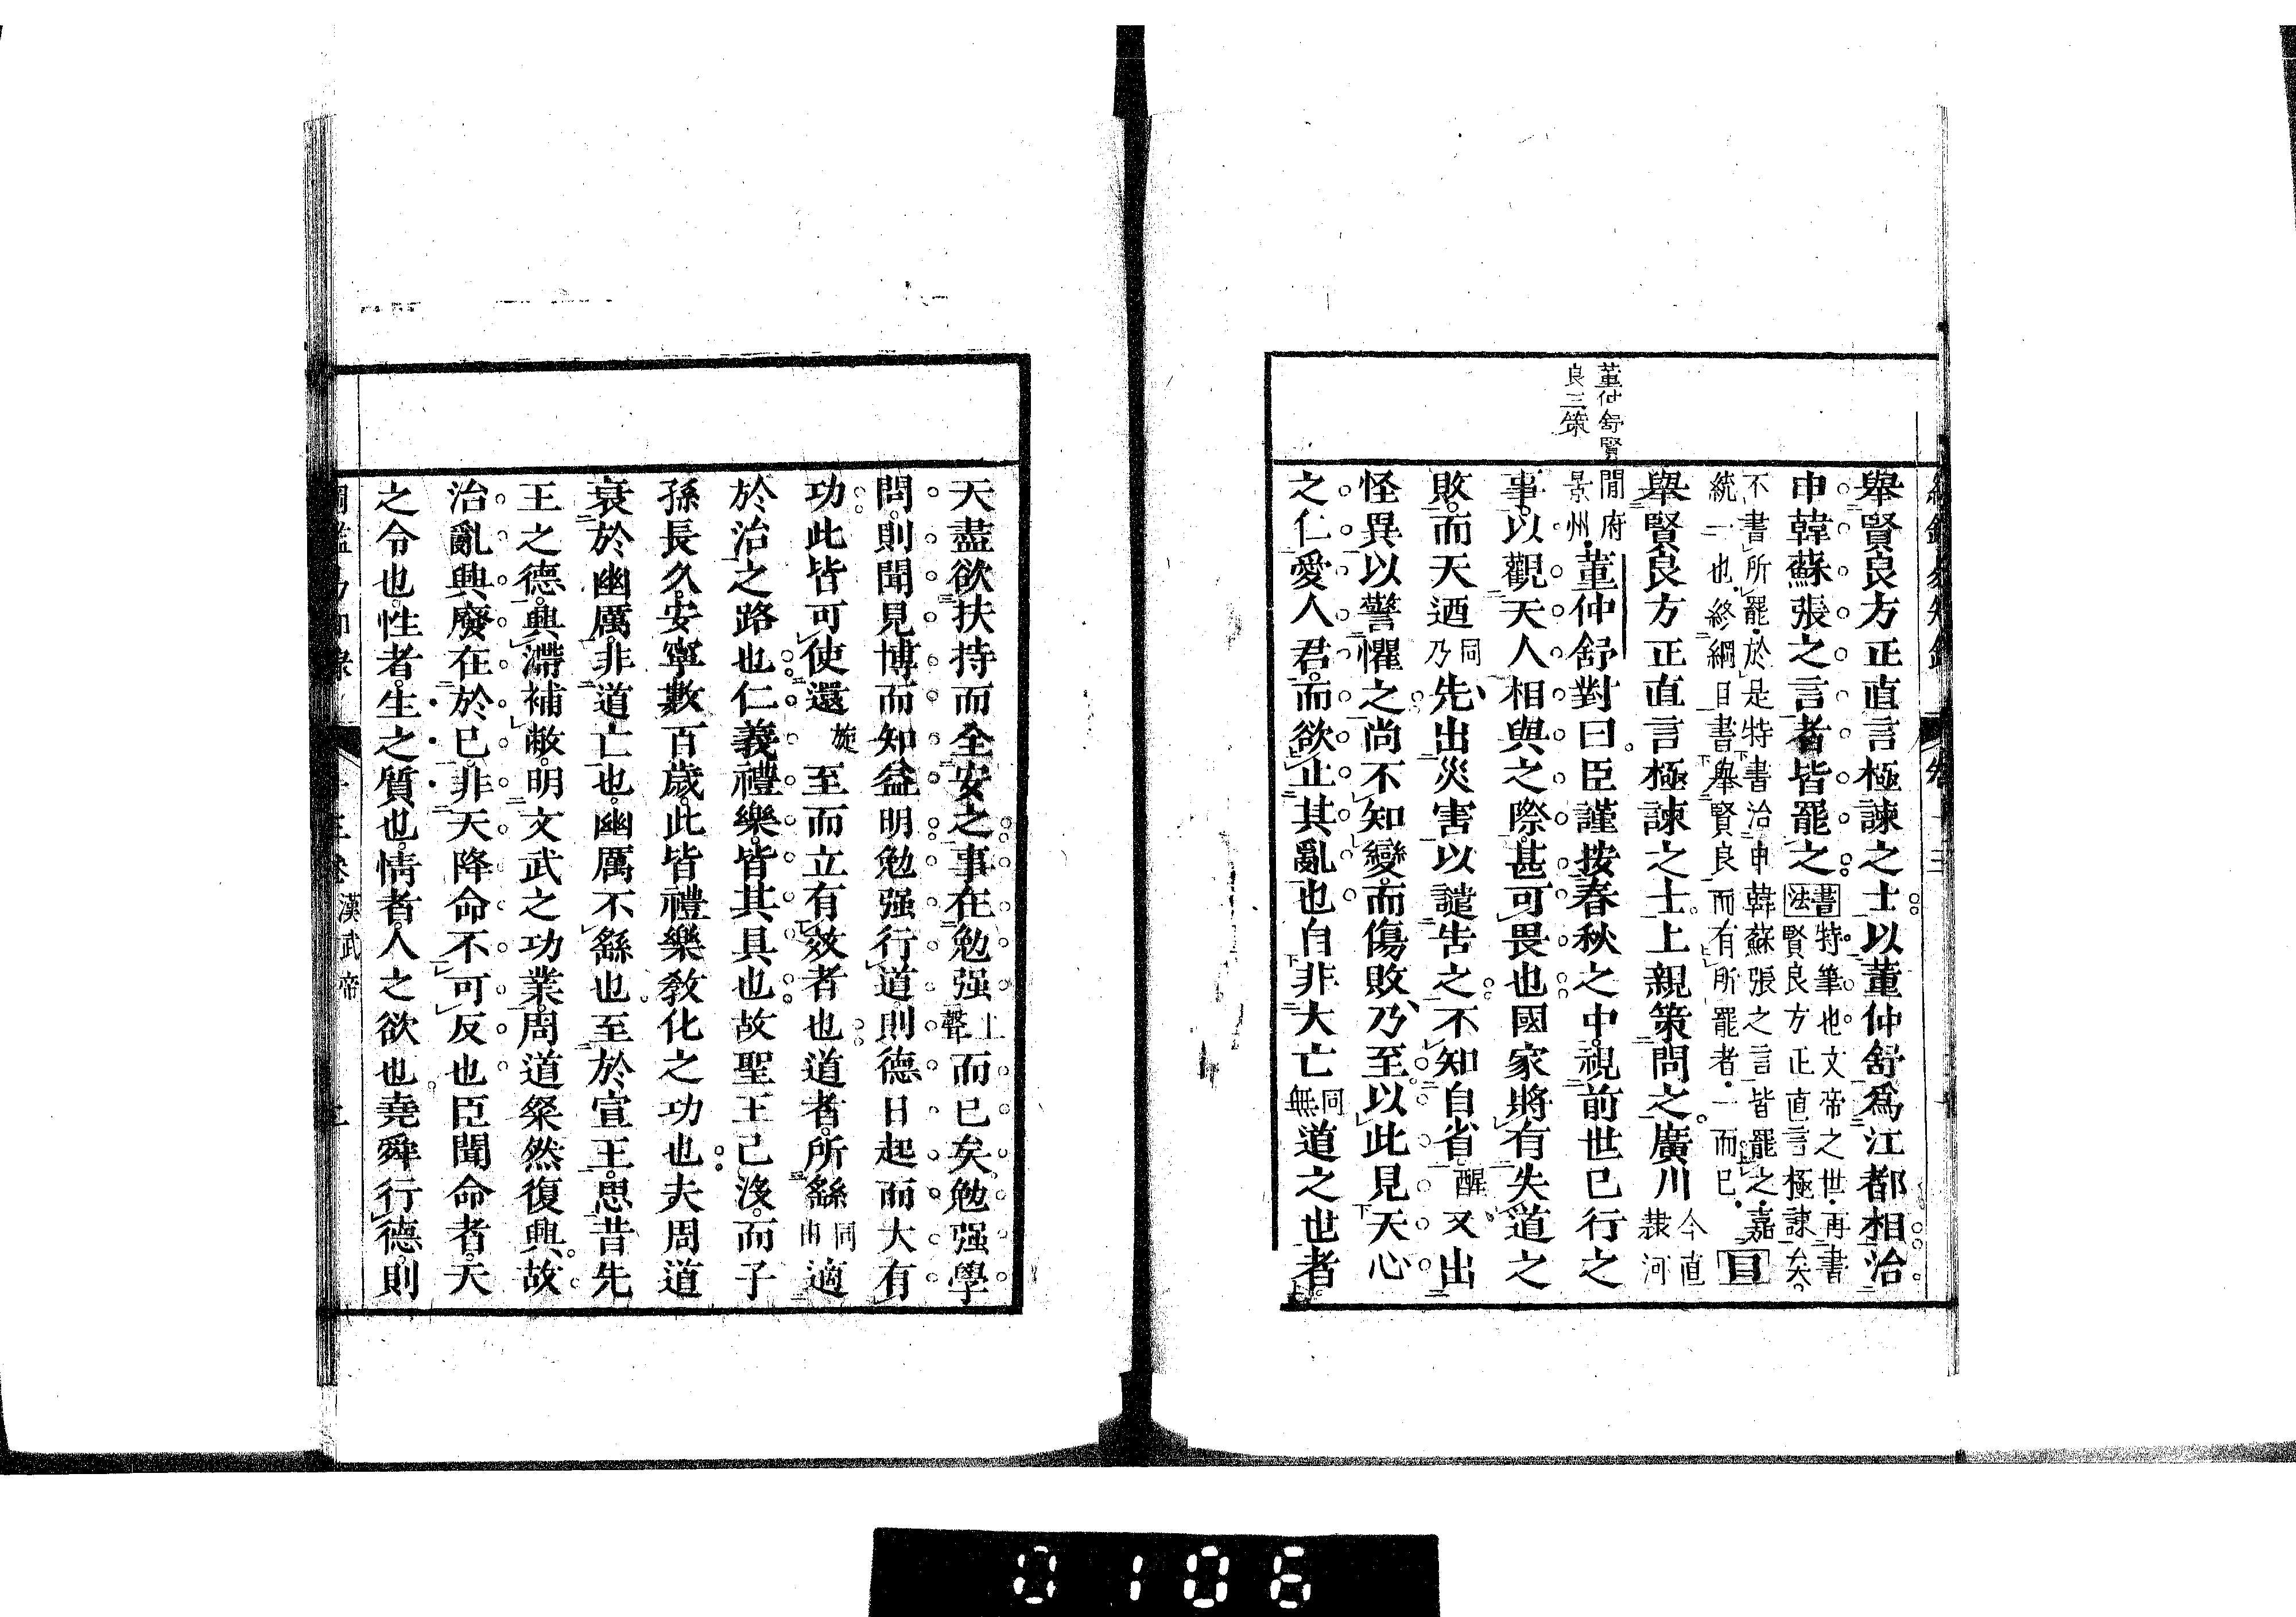 董仲舒賢
良三策
舉賢良方正直言極諫之士以董仲舒爲江都相治
申韓蘇張之言者皆罷之書法特筆也文帝之世再書賢良方正直言極諫矣
不書所罷於是特書治申韓蘇張之言皆罷之嘉
統一也終綱目書舉賢良而有所罷者一而已目
舉賢良方正直言極諫之士上親策問之廣川今直隸河
間府景州董仲舒對曰臣謹按春秋之中視前世已行之
事以觀天人相與之際甚可畏也國家將有失道之
敗而天迺同乃先出災害以譴告之不知自省醒又出
怪異以警懼之尚不知變而傷敗乃至以此見天心
之仁愛人君而欲止其亂也自非大亡同無道之世者
天盡欲扶持而全安之事在勉强上聲而已矣勉强學
問則聞見博而知益明勉强行道則德日起而大有
功此皆可使還旋至而立有效者也道者所繇同由適
於治之路也仁義禮樂皆其具也故聖王已沒而子
孫長久安寧數百歲此皆禮樂敎化之功也夫周道
衰於幽厲非道亡也幽厲不繇也至於宣王思昔先
王之德興滯補敝明文武之功業周道粲然復興故
治亂興廢在於已非天降命不可反也臣聞命者天
之令也性者生之質也情者人之欲也堯舜行德則
漢武帝
0106